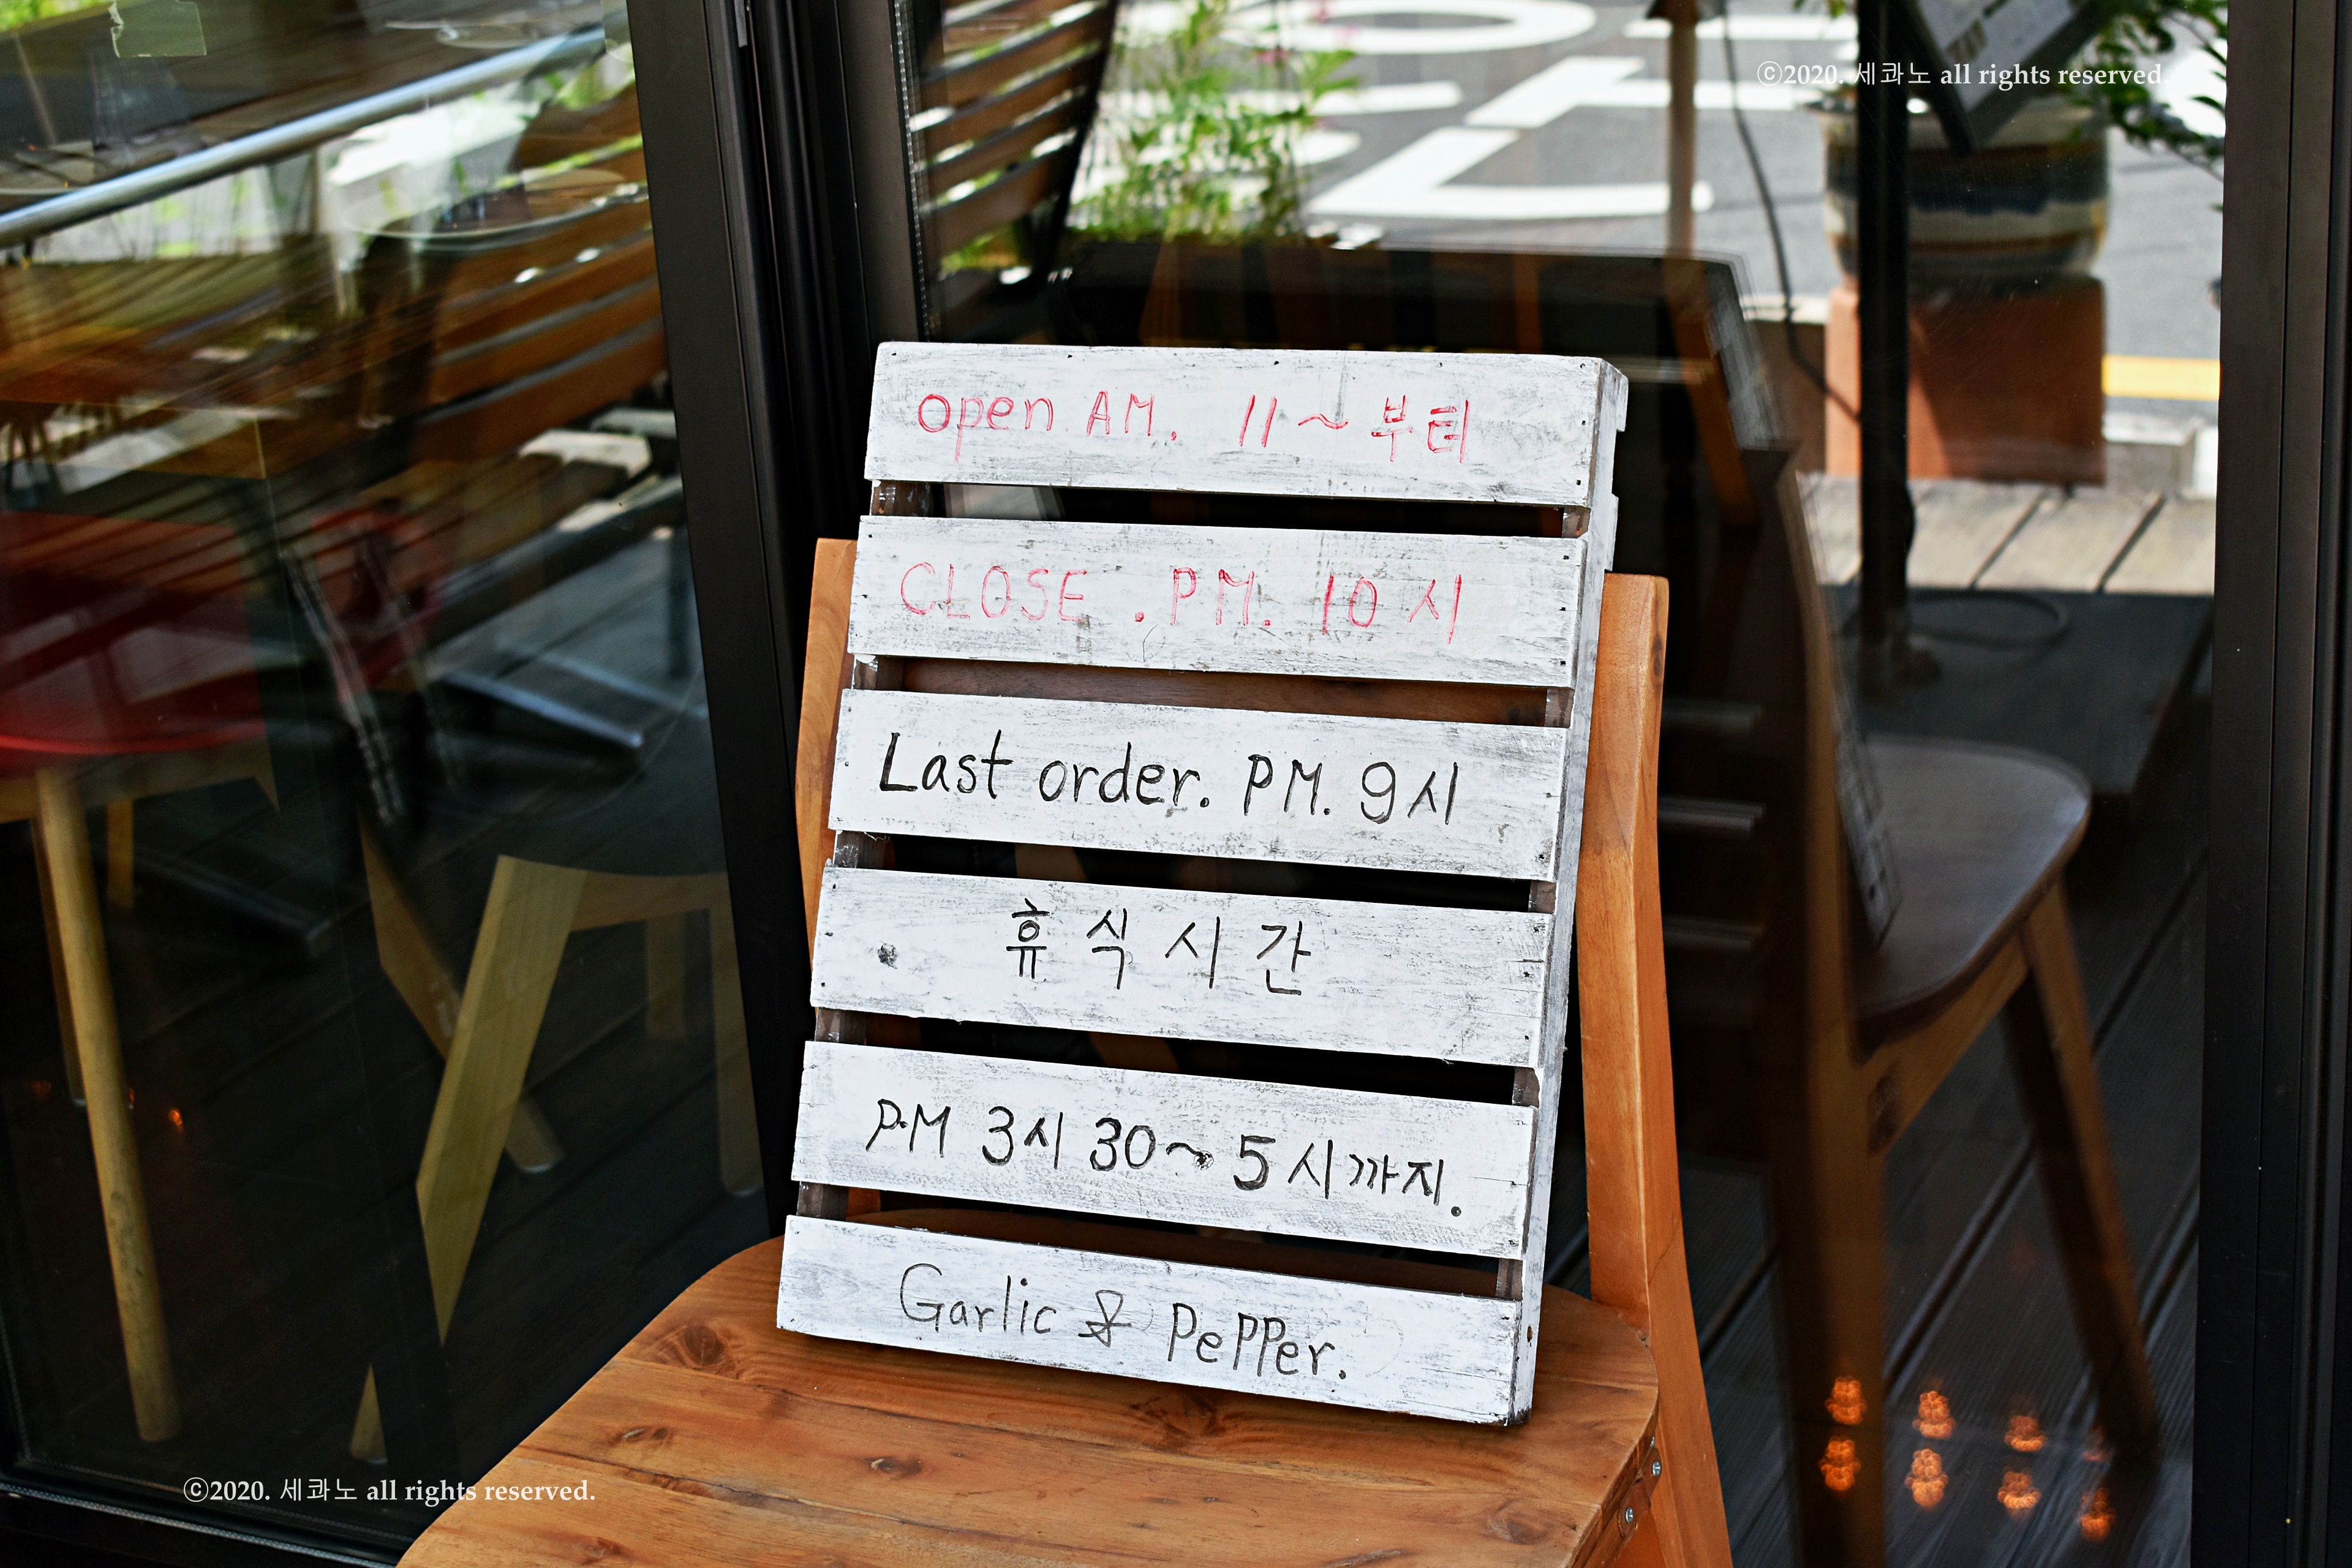 ⓒ2020. 세콰노 all rights reserved.
open AM. 11~부터
CLOSE. PM. 10시
Last order. PM. 9시
휴식시간
P.M 3시 30~5시까지.
Garlic & PePPer.
ⓒ2020. 세콰노 all rights reserved.